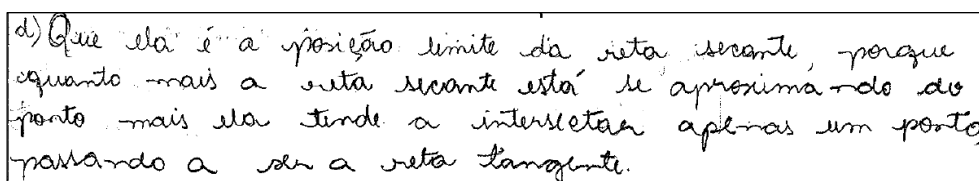 d) Que ela é a posição limite da reta secante, porque
quanto mais a reta secante está se aproximando do
ponto mais ela tende a intersectar apenas um ponto,
passando a ser a reta tangente.